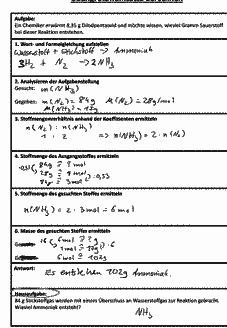 Aufgabe:
Ein Chemiker erwärmt 8,35 g Diiodpentaoxid und möchte wissen, wieviel Gramm Sauerstoff
bei dieser Reaktion entstehen.
1. Wort- und Formelgleichung aufstellen
Wasserstoff + Stickstoff → Ammoniak
3H₂ + N₂ → 2NH₃
2. Analysieren der Aufgabenstellung
Gesucht: m(NH₃)
Gegeben: m(N₂) = 84g M(N₂) = 28g/mol
M(NH₃) = 17g
3. Stoffmengenverhältnis anhand der Koeffizienten ermitteln
n(N₂) : n(NH₃)
1 : 2 ⇒ n(NH₃) = 2 · n(N₂)
4. Stoffmenge des Ausgangsstoffes ermitteln
84g ≙ ? mol
28g ≙ 1 mol
84g ≙ 3mol
5. Stoffmenge des gesuchten Stoffes ermitteln
n(NH₃) = 2 · 3mol = 6mol
6. Masse des gesuchten Stoffes ermitteln
6mol ≙ ? g
1mol ≙ 17g
6mol ≙ 102g
Antwort:
Es entstehen 102g Ammoniak.
Hausaufgabe:
84 g Stickstoffgas werden mit einem Überschuss an Wasserstoffgas zur Reaktion gebracht.
Wieviel Ammoniak entsteht?
NH₃